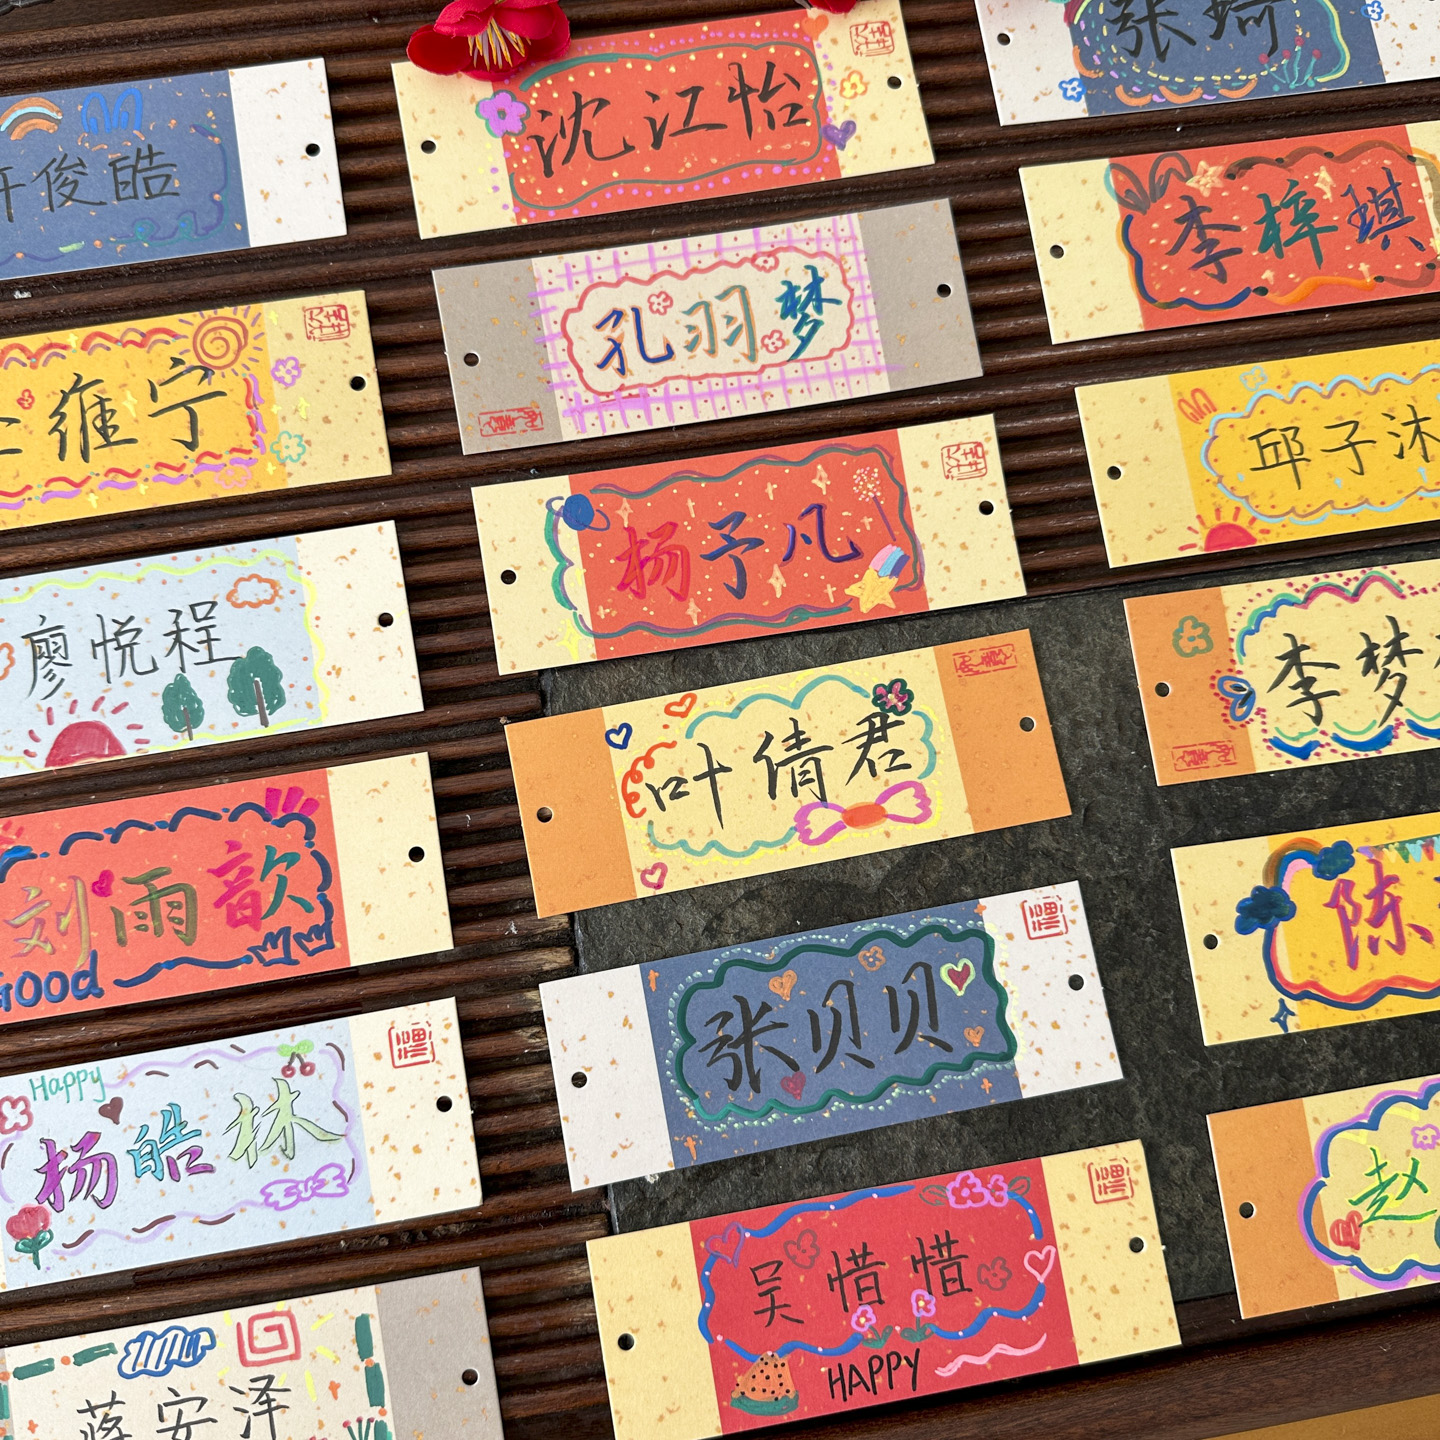 俊皓
沈江怡
张琦
维宁
孔羽梦
李梓琪
廖悦程
杨予凡
邱子沐
刘雨歆
Good
叶倩君
李梦
Happy
杨皓林
张贝贝
福
陈
蒋安泽
吴惜惜
HAPPY
福
赵